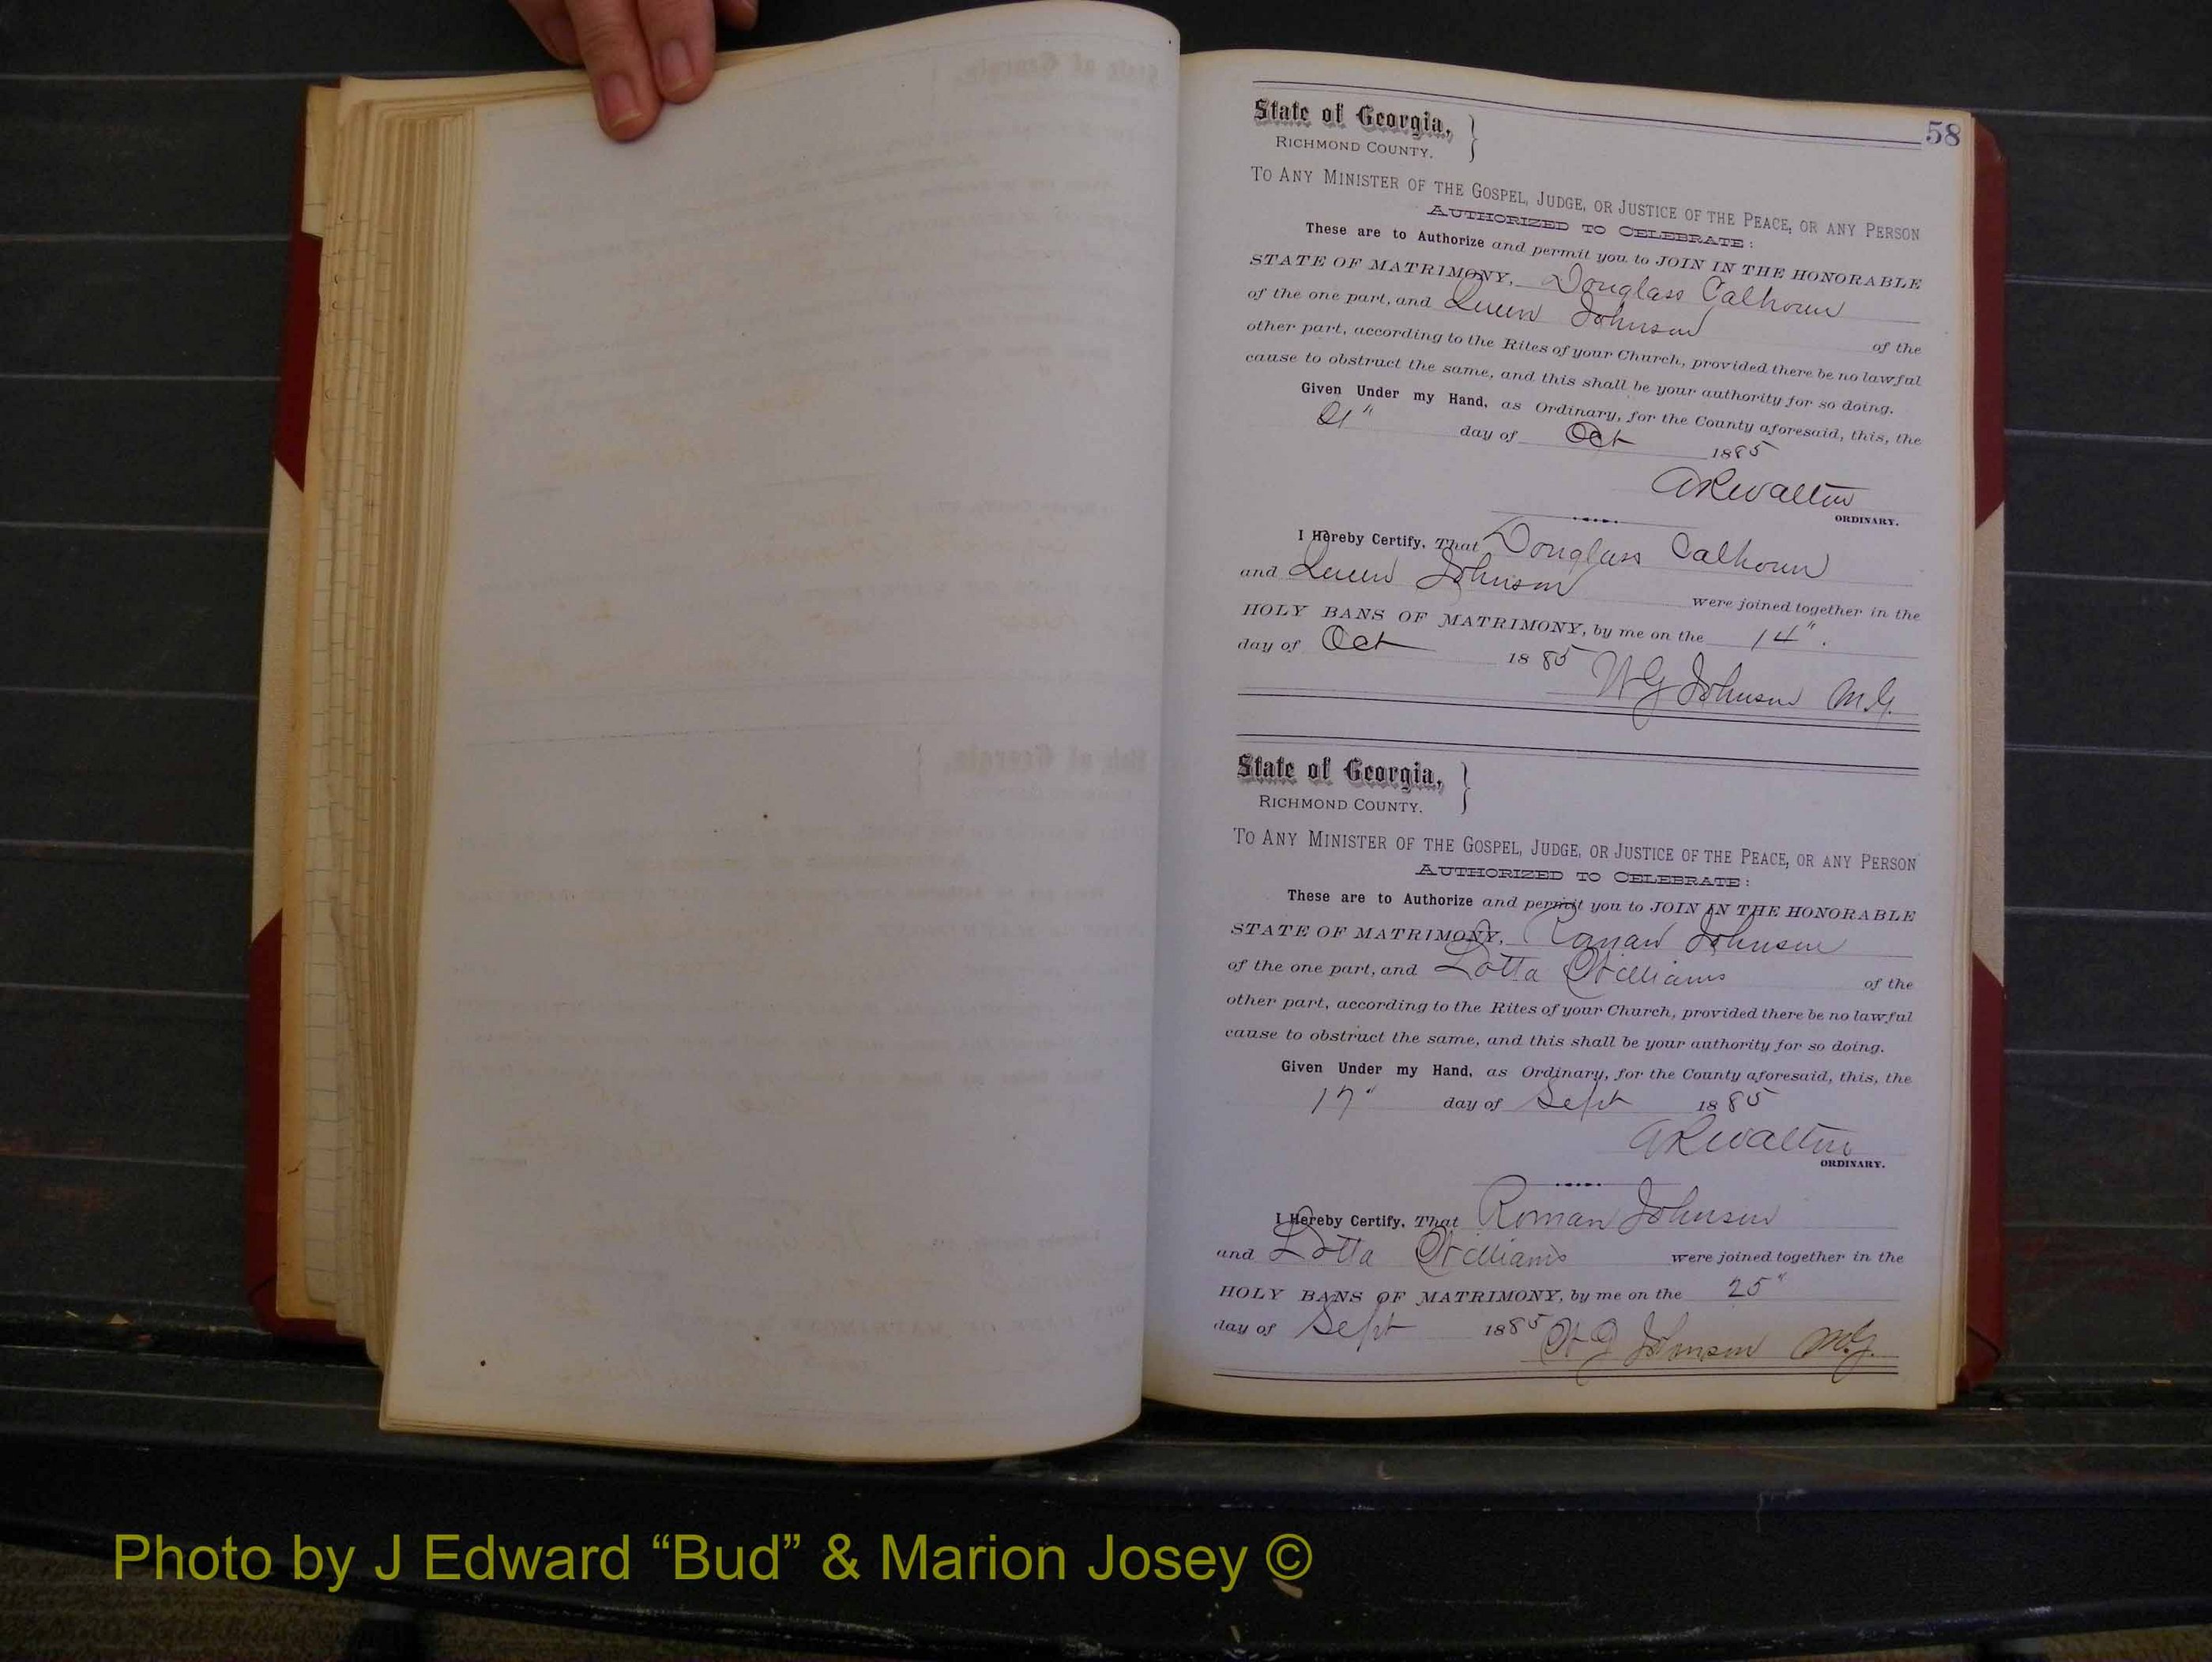 58
State of Georgia, }
RICHMOND COUNTY.
TO ANY MINISTER OF THE GOSPEL, JUDGE, OR JUSTICE OF THE PEACE, OR ANY PERSON
AUTHORIZED TO CELEBRATE:
These are to Authorize and permit you to JOIN IN THE HONORABLE
STATE OF MATRIMONY, Douglass Calhoun
of the one part, and Queen Johnson of the
other part, according to the Rites of your Church, provided there be no lawful
cause to obstruct the same, and this shall be your authority for so doing.
Given Under my Hand, as Ordinary, for the County aforesaid, this, the
day of Oct 1885
A R Walton
ORDINARY.
I Hereby Certify, That Douglass Calhoun
and Queen Johnson were joined together in the
HOLY BANS OF MATRIMONY, by me on the 14".
day of Oct 1885 W G Johnson M.G.
State of Georgia, }
RICHMOND COUNTY.
TO ANY MINISTER OF THE GOSPEL, JUDGE, OR JUSTICE OF THE PEACE, OR ANY PERSON
AUTHORIZED TO CELEBRATE:
These are to Authorize and permit you to JOIN IN THE HONORABLE
STATE OF MATRIMONY, Roman Johnson
of the one part, and Lotta Williams of the
other part, according to the Rites of your Church, provided there be no lawful
cause to obstruct the same, and this shall be your authority for so doing.
Given Under my Hand, as Ordinary, for the County aforesaid, this, the
17" day of Sept 1885
A R Walton
ORDINARY.
I Hereby Certify, That Roman Johnson
and Lotta Williams were joined together in the
HOLY BANS OF MATRIMONY, by me on the 25"
day of Sept 1885 W G Johnson M.G.
Photo by J Edward “Bud” & Marion Josey ©